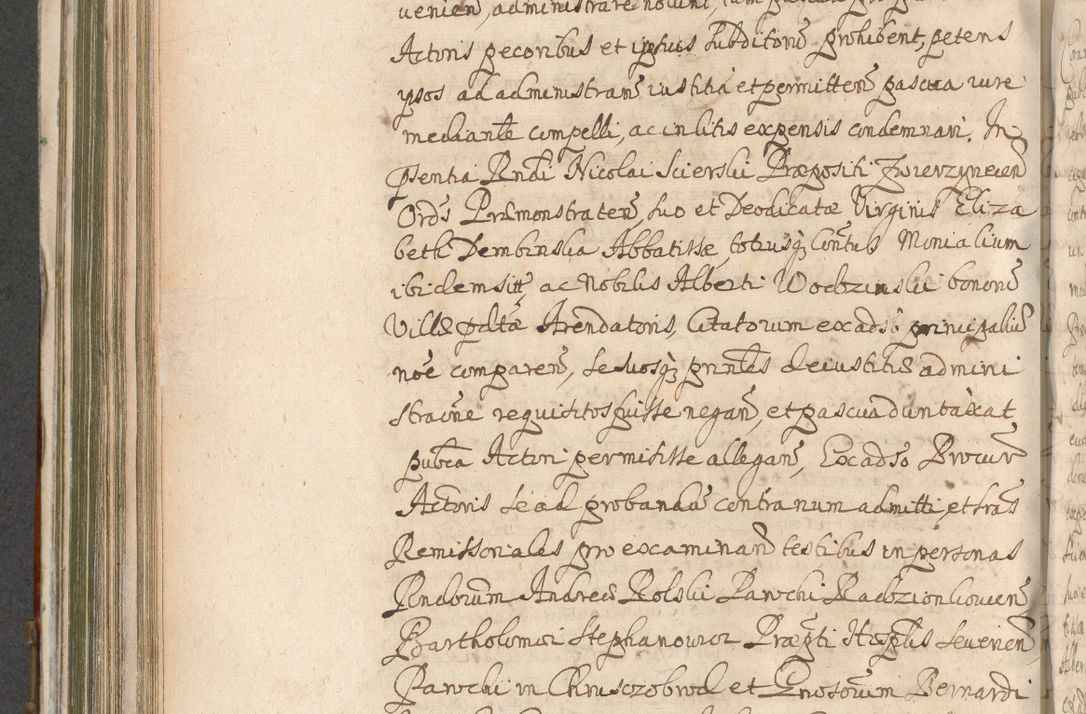 uenien̄, administrare nolunt,
Actoris pecoribus et ipsius Subditorū prohibent, petens
ipsos ad administran̄ iustitiā et permitten̄ pascua iure
mediante compelli, ac in litis expensis condemnari. In
pñtia Rndi Nicolai Scierski Præpositi Zwierzynecen̄
Ordīs Præmonstraten̄, suo et Deodicatæ Virginis Eliza
beth Dembinska Abbatisse, totiusq₃ Contūs Monialium
ibidem ac Nobilis Alberti Wodzinski bonorū
Villæ pdtæ Arendatoris, Citatorum ex adso principaliū
noē comparen̄, se suosq₃ prinles de iustitiæ admini
straōne requisitos fuisse negan̄, et pascua duntaxat
pubca Actori permisisse allegan̄, Ex adso Procurr̄
Actoris se ad probandū contrarium admitti, et Lrās
Remissoriales pro examinan̄ testibus in personas
Rndorum Andreæ Rolski Parochi Radzionkouien̄
Bartholomæi Stephanowicz Præpti Hosplis Seuerien̄,
Parochi in Chrusczobrod et Gnosorum Bernardi